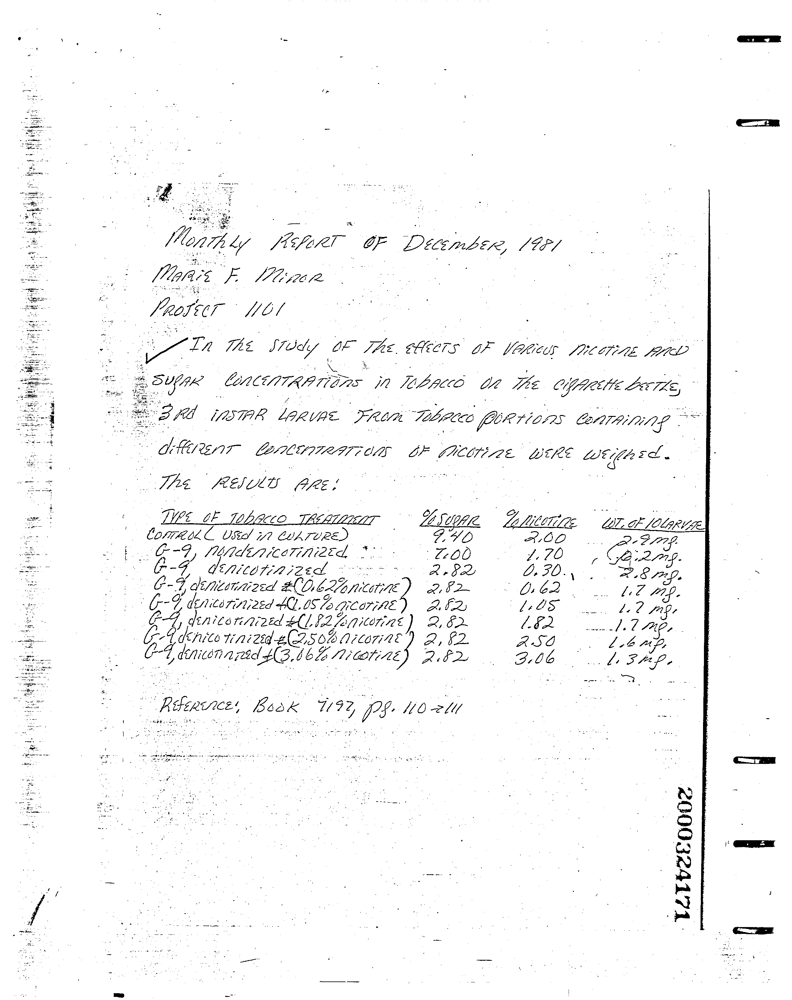 Monthly Report of December, 1981
Marie F. Minor
Project 1101
In the study of the effects of various nicotine and
sugar concentrations in tobacco on the cigarette beetle,
3rd instar larvae from tobacco portions containing
different concentrations of nicotine were weighed.
The results are:
Type of Tobacco Treatment % Sugar % Nicotine Wt. of 10 Larvae
Control (used in culture) 9.40 2.00 2.9 mg.
G-9, nondenicotinized 7.00 1.70 .2 mg.
G-9, denicotinized 2.82 0.30 2.8 mg.
G-9, denicotinized + (0.62% nicotine) 2.82 0.62 1.7 mg.
G-9, denicotinized + (1.05% nicotine) 2.82 1.05 1.7 mg.
G-9, denicotinized + (1.82% nicotine) 2.82 1.82 1.7 mg.
G-9, denicotinized + (2.50% nicotine) 2.82 2.50 1.6 mg.
G-9, denicotinized + (3.06% nicotine) 2.82 3.06 1.3 mg.
Reference: Book 7197, pg. 110-111
2000324171